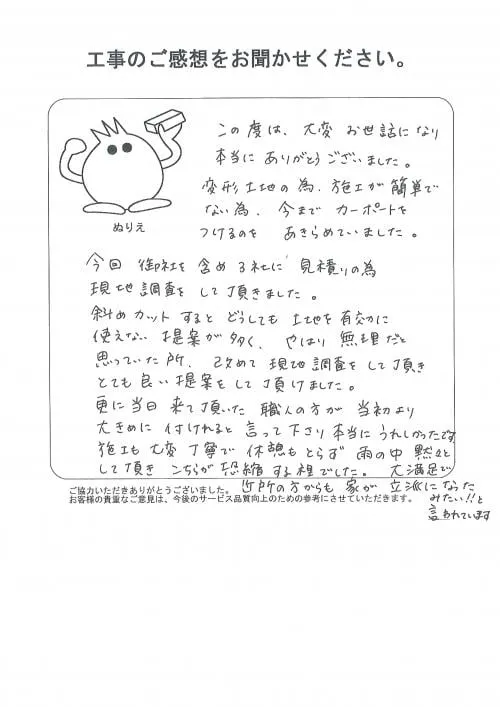 工事のご感想をお聞かせください。
この度は、大変 お世話になり
本当に ありがとうございました。
変形土地の為、施工が簡単で
ない為、今まで カーポートを
つけるのを あきらめていました。
ぬりえ
今回 御社を含め3社に 見積りの為
現地調査をして頂きました。
斜めカットするとどうしても土地を有効に
使えない提案が多く、やはり無理だと
思っていた所、改めて現地調査をして頂き
とても良い提案をして頂けました。
更に当日来て頂いた 職人の方が 当初より
大きめに付けれると言って下さり本当にうれしかったです
施工も大変丁寧で休憩もとらず 雨の中 黙々と
して頂き こちらが恐縮する程でした。 大満足で
ご協力いただきありがとうございました。 近所の方からも 家が 立派になった
お客様の貴重なご意見は、今後のサービス品質向上のための参考にさせていただきます。 みたい!!と
言われています